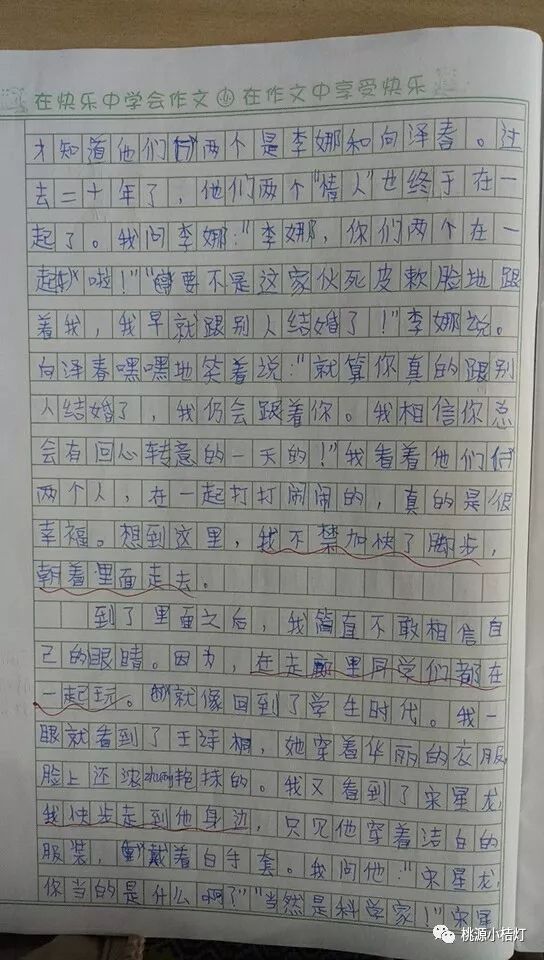 在快乐中学会作文 在作文中享受快乐
才知道他们两个是李娜和向泽春。过
去二十年了，他们两个“情人”也终于在一
起了。我问李娜：“李娜，你们两个在一
起啦！”“要不是这家伙死皮赖脸地跟
着我，我早就跟别人结婚了！”李娜说。
向泽春嘿嘿地笑着说：“就算你真的跟别
人结婚了，我仍会跟着你。我相信你总
会有回心转意的一天的！”我看着他们
两个人，在一起打打闹闹的，真的是很
幸福。想到这里，我不禁加快了脚步，
朝着里面走去。
到了里面之后，我简直不敢相信自
己的眼睛。因为，在走廊里同学们都在
一起玩。就像回到了学生时代。我一
眼就看到了王诗桐，她穿着华丽的衣服，
脸上还浓zhuāng艳抹的。我又看到了宋星龙，
我快步走到他身边，只见他穿着洁白的
服装，戴着白手套。我问他：“宋星龙，
你当的是什么啊？”“当然是科学家！”宋星
桃源小桔灯